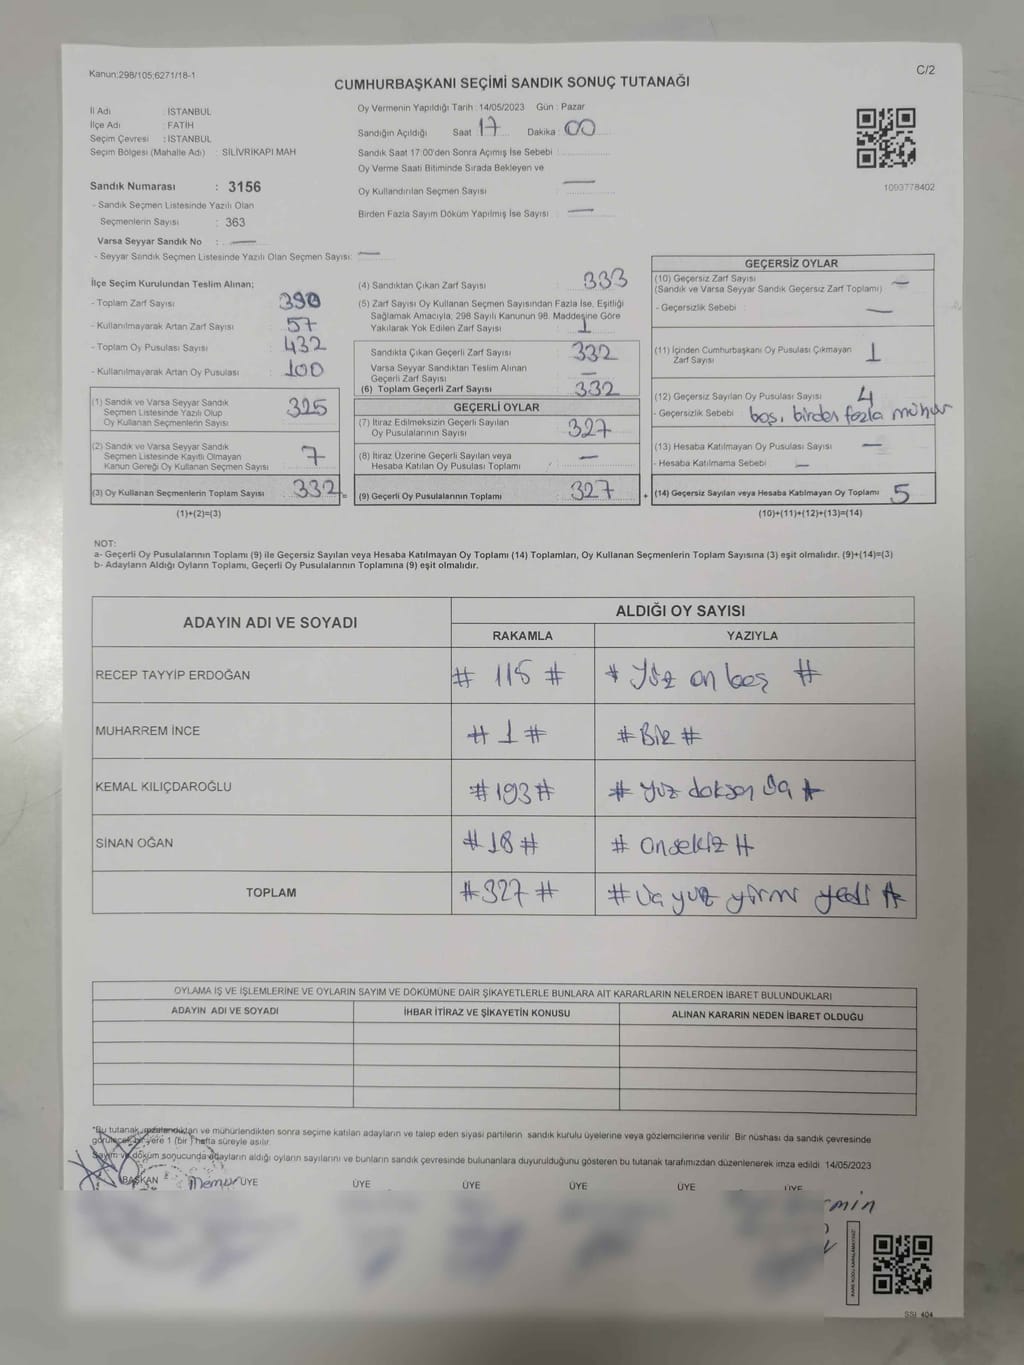 Kanun:298/105;6271/18-1
C/2
CUMHURBAŞKANI SEÇİMİ SANDIK SONUÇ TUTANAĞI
İl Adı : İSTANBUL
İlçe Adı : FATİH
Seçim Çevresi : İSTANBUL
Seçim Bölgesi (Mahalle Adı) : SİLİVRİKAPI MAH
Sandık Numarası : 3156
- Sandık Seçmen Listesinde Yazılı Olan
Seçmenlerin Sayısı : 363
Varsa Seyyar Sandık No : —
- Seyyar Sandık Seçmen Listesinde Yazılı Olan Seçmen Sayısı: —
Oy Vermenin Yapıldığı Tarih : 14/05/2023 Gün : Pazar
Sandığın Açıldığı Saat 17 Dakika : 00
Sandık Saat 17:00'den Sonra Açımış İse Sebebi :
Oy Verme Saati Bitiminde Sırada Bekleyen ve
Oy Kullandırılan Seçmen Sayısı : —
Birden Fazla Sayım Döküm Yapılmış İse Sayısı : —
1093778402
İlçe Seçim Kurulundan Teslim Alınan;
- Toplam Zarf Sayısı : 390
- Kullanılmayarak Artan Zarf Sayısı : 57
- Toplam Oy Pusulası Sayısı : 432
- Kullanılmayarak Artan Oy Pusulası : 100
(1) Sandık ve Varsa Seyyar Sandık
Seçmen Listesinde Yazılı Olup
Oy Kullanan Seçmenlerin Sayısı : 325
(2) Sandık ve Varsa Seyyar Sandık
Seçmen Listesinde Kayıtlı Olmayan
Kanun Gereği Oy Kullanan Seçmen Sayısı : 7
(3) Oy Kullanan Seçmenlerin Toplam Sayısı : 332 =
(1)+(2)=(3)
(4) Sandıktan Çıkan Zarf Sayısı : 333
(5) Zarf Sayısı Oy Kullanan Seçmen Sayısından Fazla İse, Eşitliği
Sağlamak Amacıyla, 298 Sayılı Kanunun 98. Maddesine Göre
Yakılarak Yok Edilen Zarf Sayısı : 1
Sandıkta Çıkan Geçerli Zarf Sayısı : 332
Varsa Seyyar Sandıktan Teslim Alınan
Geçerli Zarf Sayısı : —
(6) Toplam Geçerli Zarf Sayısı : 332
GEÇERLİ OYLAR
(7) İtiraz Edilmeksizin Geçerli Sayılan
Oy Pusulalarının Sayısı : 327
(8) İtiraz Üzerine Geçerli Sayılan veya
Hesaba Katılan Oy Pusulası Toplamı : —
(9) Geçerli Oy Pusulalarının Toplamı : 327 +
GEÇERSİZ OYLAR
(10) Geçersiz Zarf Sayısı : —
(Sandık ve Varsa Seyyar Sandık Geçersiz Zarf Toplamı)
- Geçersizlik Sebebi : —
(11) İçinden Cumhurbaşkanı Oy Pusulası Çıkmayan : 1
Zarf Sayısı
(12) Geçersiz Sayılan Oy Pusulası Sayısı : 4
- Geçersizlik Sebebi : boş, birden fazla mühür
(13) Hesaba Katılmayan Oy Pusulası Sayısı : —
- Hesaba Katılmama Sebebi : —
(14) Geçersiz Sayılan veya Hesaba Katılmayan Oy Toplamı : 5
(10)+(11)+(12)+(13)=(14)
NOT:
a- Geçerli Oy Pusulalarının Toplamı (9) ile Geçersiz Sayılan veya Hesaba Katılmayan Oy Toplamı (14) Toplamları, Oy Kullanan Seçmenlerin Toplam Sayısına (3) eşit olmalıdır. (9)+(14)=(3)
b- Adayların Aldığı Oyların Toplamı, Geçerli Oy Pusulalarının Toplamına (9) eşit olmalıdır.
ADAYIN ADI VE SOYADI ALDIĞI OY SAYISI
RAKAMLA YAZIYLA
RECEP TAYYİP ERDOĞAN # 115 # # Yüz on beş #
MUHARREM İNCE # 1 # # Bir #
KEMAL KILIÇDAROĞLU # 193 # # Yüz doksan üç #
SİNAN OĞAN # 18 # # Onsekiz #
TOPLAM # 327 # # Üç yüz yirmi yedi #
OYLAMA İŞ VE İŞLEMLERİNE VE OYLARIN SAYIM VE DÖKÜMÜNE DAİR ŞİKAYETLERLE BUNLARA AİT KARARLARIN NELERDEN İBARET BULUNDUKLARI
ADAYIN ADI VE SOYADI İHBAR İTİRAZ VE ŞİKAYETİN KONUSU ALINAN KARARIN NEDEN İBARET OLDUĞU
*Bu tutanak, düzenlendikten ve mühürlendikten sonra seçime katılan adayların ve talep eden siyasi partilerin sandık kurulu üyelerine veya gözlemcilerine verilir. Bir nüshası da sandık çevresinde
görülecek bir yere 1 (bir) hafta süreyle asılır.
Sayım ve döküm sonucunda adayların aldığı oyların sayılarını ve bunların sandık çevresinde bulunanlara duyurulduğunu gösteren bu tutanak tarafımızdan düzenlenerek imza edildi. 14/05/2023
BAŞKAN Memur ÜYE ÜYE ÜYE ÜYE ÜYE ÜYE
SSI 404